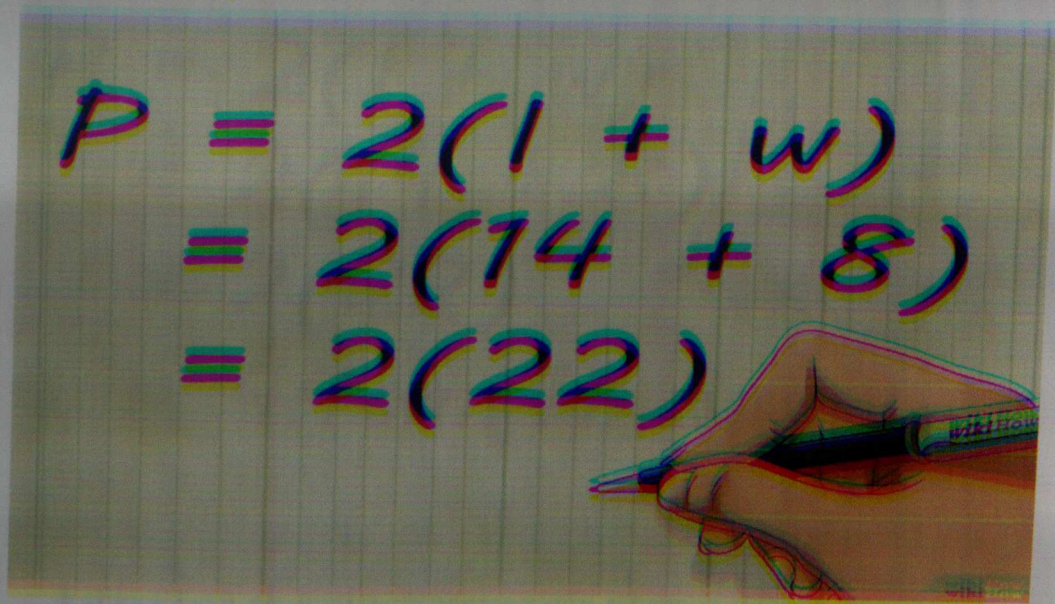 P = 2(l + w)
= 2(14 + 8)
= 2(22)
wikiHow
wikiHow